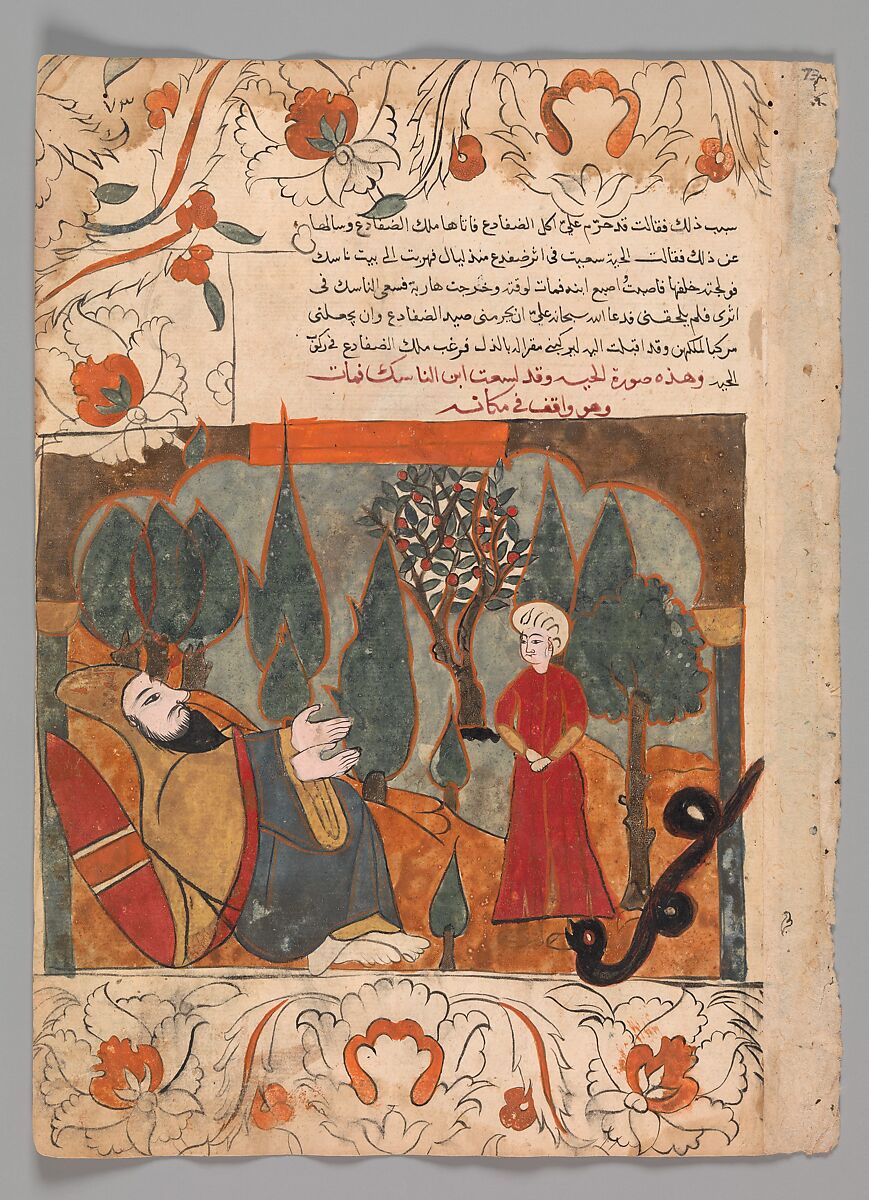 ٧٣
سبب ذلك فقالت قد حرم علي اكل الضفادع فاتاها ملك الضفادع وسالها
عن ذلك فقالت الحية سعيت فى اثر ضفدع منذ ليال فهربت الى بيت ناسك
فولجته خلفها فاصبت اصبع ابنه فمات لوقته وخرجت هاربة فسعى الناسك فى
اثرى فلم يلحقنى فدعا الله سبحانه علي ان يحرمنى صيد الضفادع وان يجعلنى
مركبا لملكهن وقد اقبلت اليه لتركبنى مقرا له بالذل فرغب ملك الضفادع فى ركوب
الحيه وهذه صورة الحيه وقد لسعت ابن الناسك فمات
وهو واقف فى مكانه